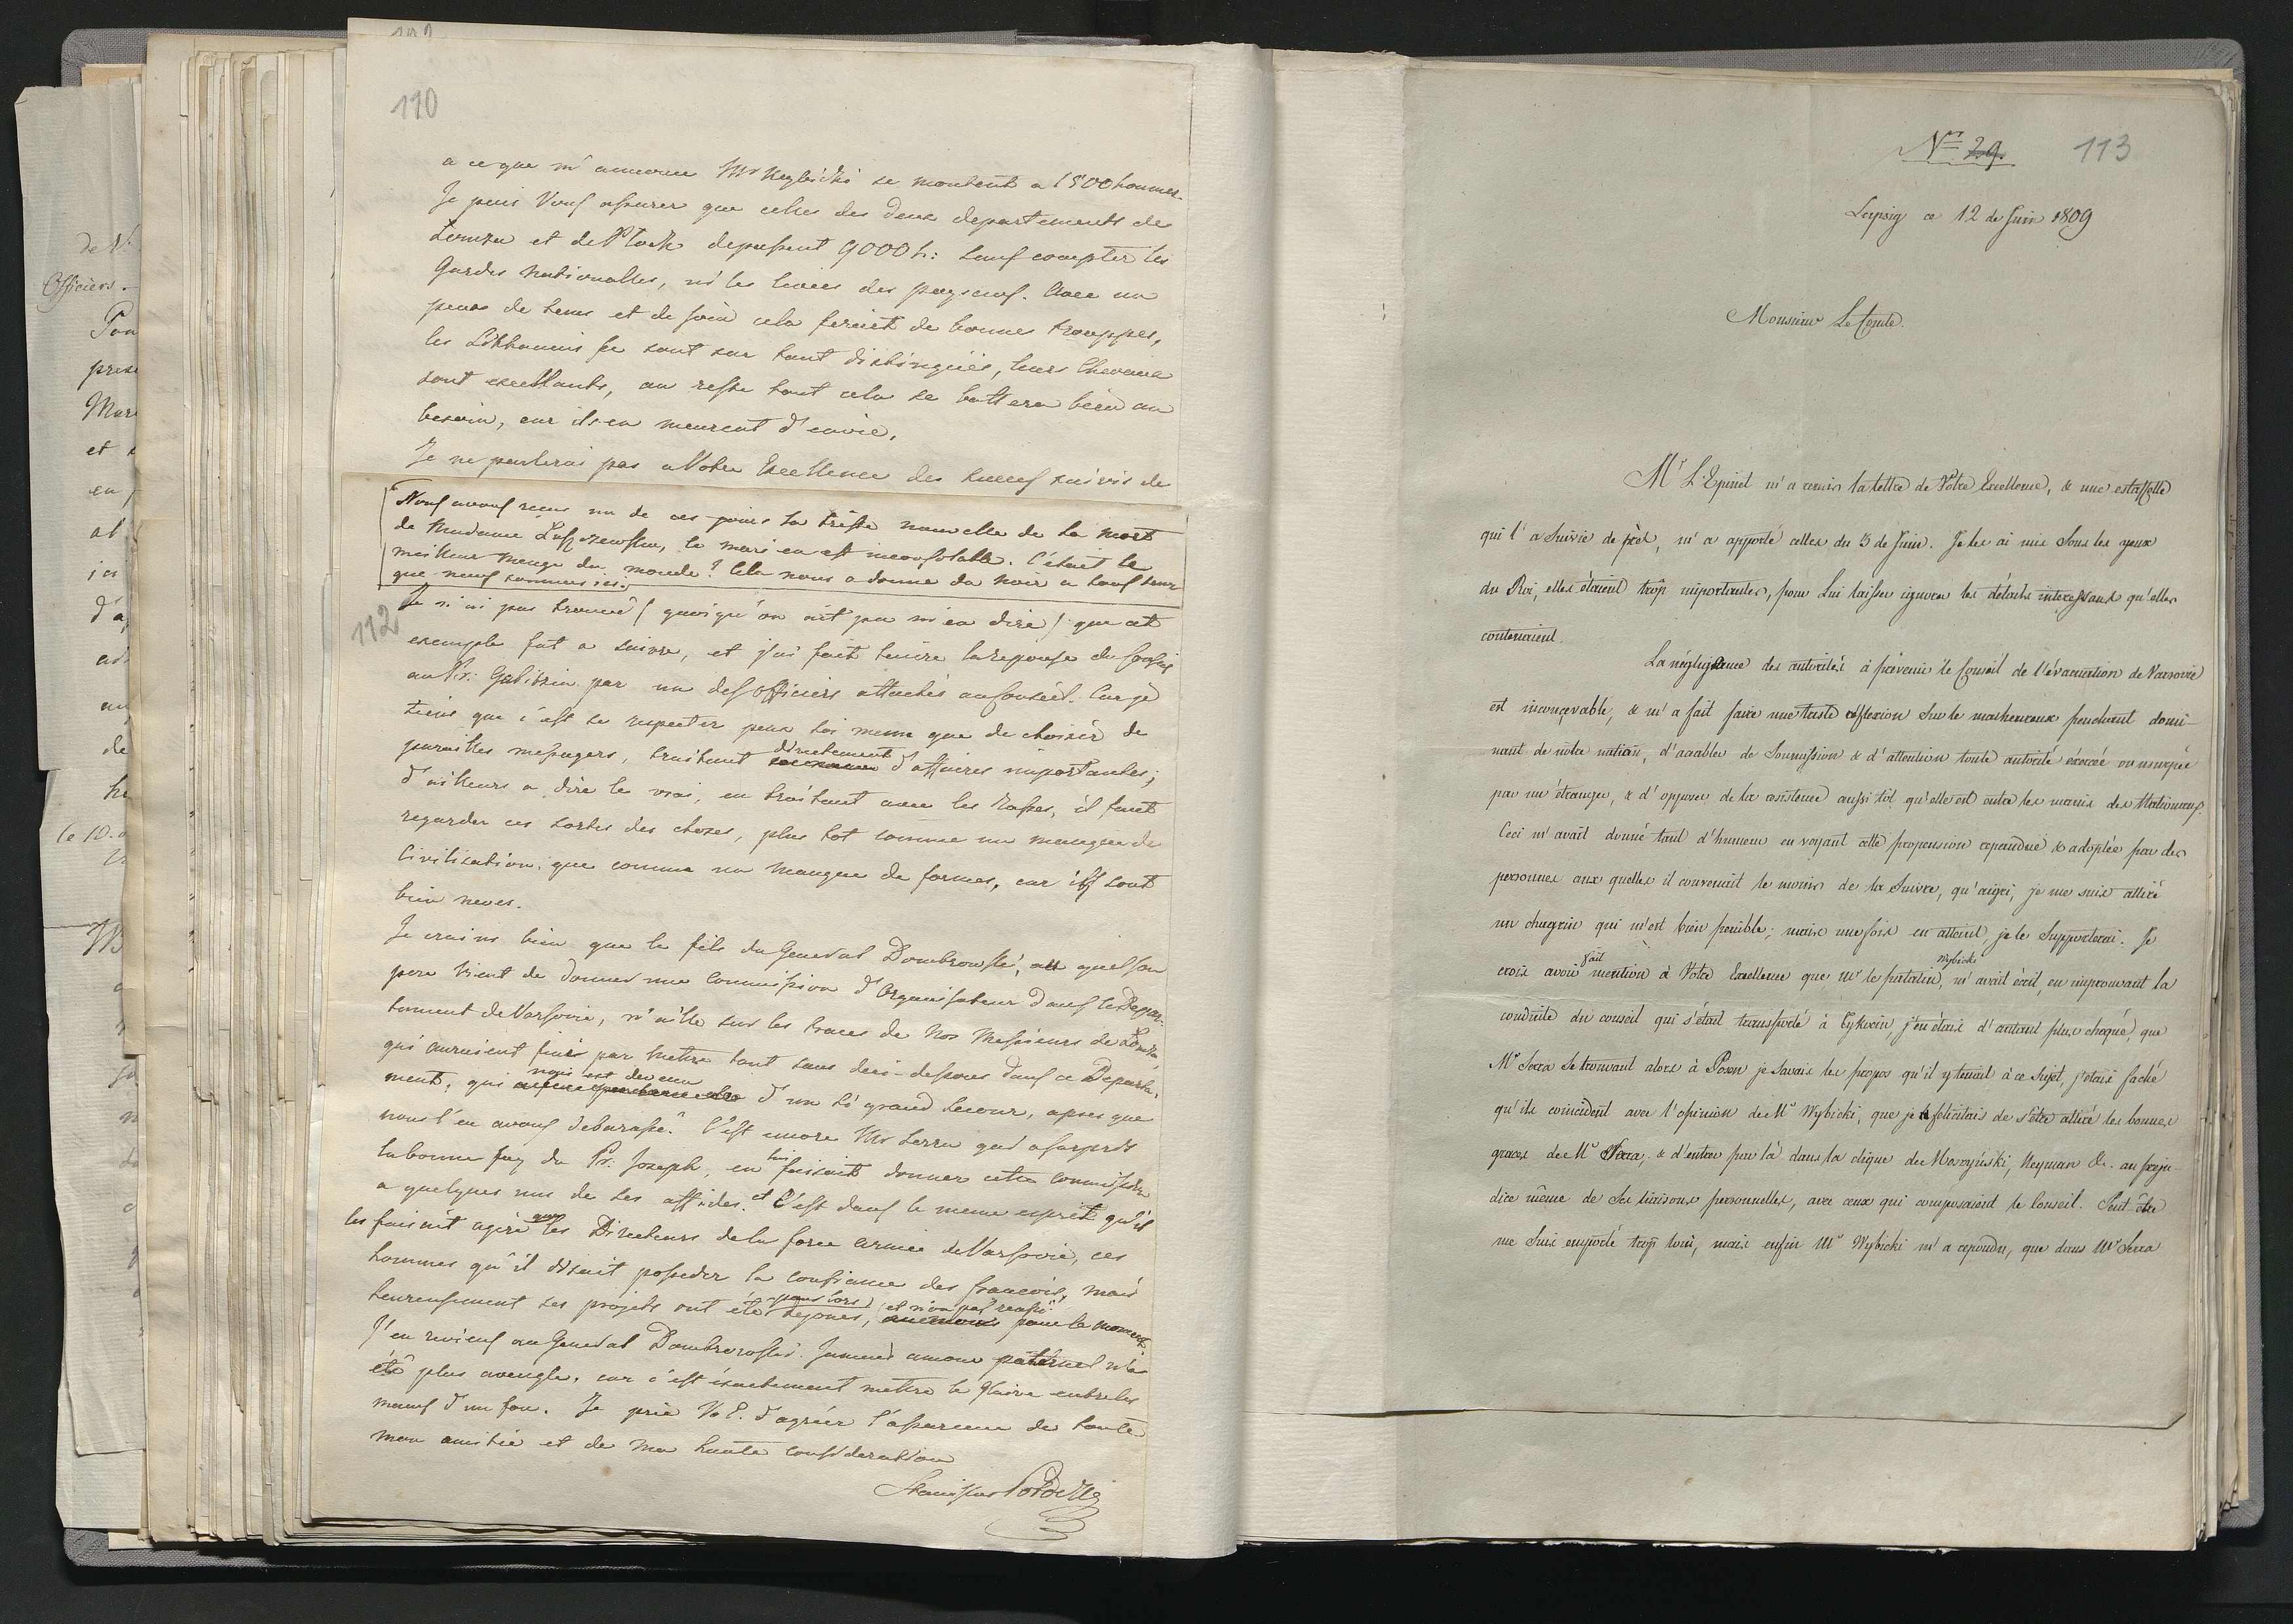 110
a ce que m'annonce Mr Keglicki se montent a 1500 hommes.
Je puis Vous assurer que celles des deux departements de
Lomza et de Plock depassent 9000 h: sans compter les
Gardes Nationalles, ni les levées des paysans. Avec un
peux de tems et de soin cela feroit de bonnes trouppes,
les Lithuaniens se sont sur tout distingués, leurs Chevaux
sont excellants, au reste tout cela se battera bien au
besoin, car ils en meurent d'envie.
Je ne parlerai pas a Votre Excellence des succes suivis de
Nous avons reçus un de ces jours la triste nouvelle de la mort
de Madame le mari en est inconsolable. C'était le
meilleur menage du monde! Cela nous a donné du noir a tous tant
que nous sommes ici.
112
Je n'ai pas trouvé (quoiqu'on ait pu m'en dire) que cet
exemple fut a suivre, et j'ai fait tenire la reponse du Conseil
au Pr: Galitzin par un des officiers attachés au Conseil. Car je
tiens que c'est se respecter peux soi meme que de choisir de
pareilles messagers, traitant directement d'affaires importantes;
d'ailleurs a dire le vrai, en traitant avec les Russes, il faut
regarder ces sortes des choses, plus tot comme un manque de
Civilisation, que comme un manque de formes, car ils sont
bien neves.
Je crains bien que le fils du General Dombrowski, quel son
pere vient de donner une Commission d'Organisateur dans le Depar-
tement de Varsovie, n'aille sur les traces de nos Messieurs de Lomza
qui auroient finis par mettre tout sans deci-dessous dans ce Departe-
ment, qui nous est devenu d'un si grand secour, apres que
nous l'en avons debarassé. C'est encore Mr Serra qui a surpris
la bonne foy du Pr. Joseph, en lui faisant donner cette Commission
a quelques uns de ses affidés. et C'est dans le meme esprit qu'il
les faisoit agire que les Directeurs de la force armée de Varsovie, ces
hommes qu'il disoit posseder la confiance des françois, mais
heureusement ses projets ont été pour lors dejoués, et n'on pas reussi pour le moment.
J'en reviens au General Dombrowski. Jamais amour paternel n'a
été plus aveugle, car c'est exactement mettre le glaive entre les
mains d'un fou. Je prie V. E. d'agréer l'assurance de toute
mon amitié et de ma haute consideration
Stanislas Potocki
Nro 29. 113
Leipsig ce 12 de Juin 1809
Monsieur Le Comte.
Mr L'Epinet m'a remis la lettre de Votre Excellence, & une estaffette
qui l'a suivie de près, m'a apporté celles du 3 de Juin. Je les ai mis sous les yeux
du Roi, elles étaient trop importantes, pour Lui laisser ignorer les détails interessants qu'elles
contenaient.
La négligeance des autorités à prévenir le Conseil de l'évacuation de Varsovie
est inconcevable, & m'a fait faire une triste réflexion sur le malheureux penchant domi-
nant de nôtre nation, d'accabler de soumission & d'attention toute autorité éxercée ou usurpée
par un étranger, & d'opposer de la resistence aussi tôt qu'elle est entre les mains des Nationaux.
Ceci m'avait donné tant d'humeur en voyant cette propension repandue & adoptée par des
personnes aux quelles il convenait le moins de la suivre, qu'aigri, je me suis attiré
un chagrin qui m'est bien penible; mais une fois en attend, je le supporterai. Je
crois avoir fait mention à Votre Excellence que Mr le palatin Wybicki, m'avait écrit, en improuvant la
conduite du conseil qui s'était transporté à Tykocin, j'en étais d'autant plus choqué, que
Mr Serra se trouvant alors à Posen je savais les propos qu'il y tenait à ce sujet, j'étais faché
qu'ils coincident avec l'opinion de Mr Wybicki, que je felicitais de s'être attiré les bonnes
graces de Mr Serra, & d'entrer par là dans la clique de Moszyński, Neyman &c. au preju-
dice même de ses liaisons personnelles, avec ceux qui composaient le Conseil. Peut-être
me suis emporté trop loin, mais enfin Mr Wybicki m'a repondu, que dans Mr Serra